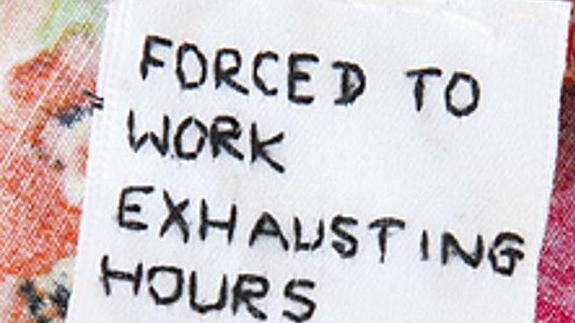 FORCED TO
WORK
EXHAUSTING
HOURS